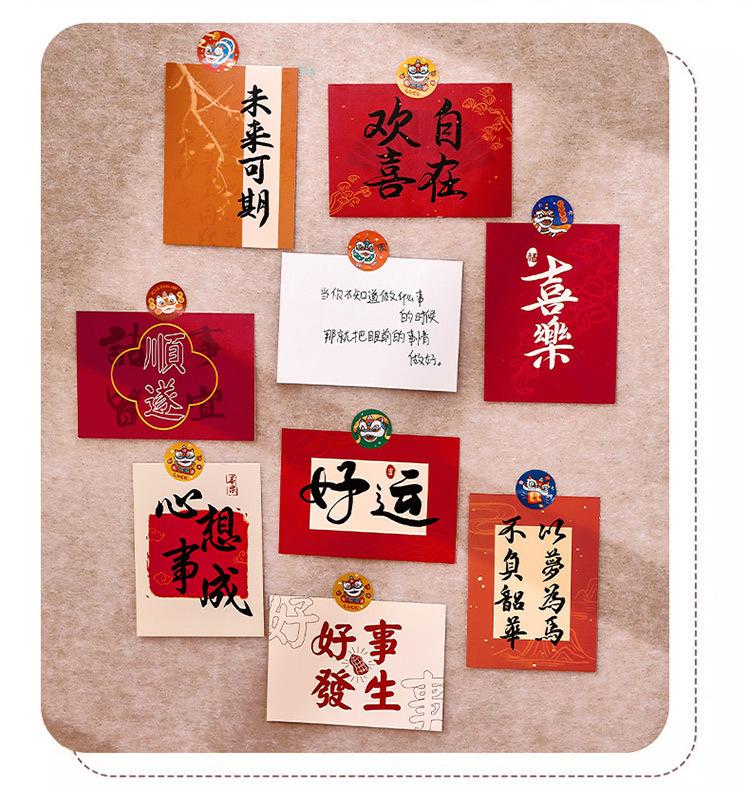 未来可期
LUCK
自在
欢喜
喜樂
当你不知道做什么事
的时候
那就把眼前的事情
做好。
諸事
皆宜
順遂
好运
LUCK
心想
事成
以夢為馬
不負韶華
LUCK
好事
發生
好
事